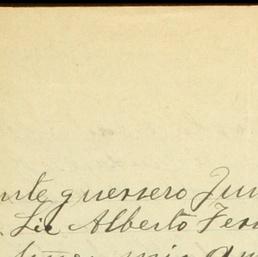 nte guerrero Jun
Lic Alberto Fer
mis am